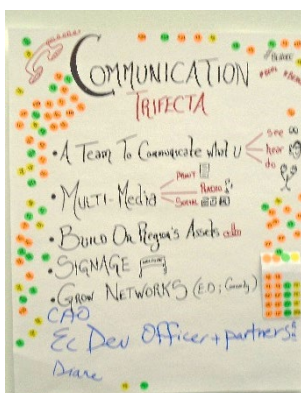 COMMUNICATION
TRIFECTA
• A TEAM TO COMMUNICATE WHAT U
see
hear
do
• MULTI-MEDIA
PRINT
RADIO
SOCIAL
• BUILD ON REGION'S ASSETS
• SIGNAGE
• GROW NETWORKS (ED;
CAO
Ec Dev Officer + partners
Diane